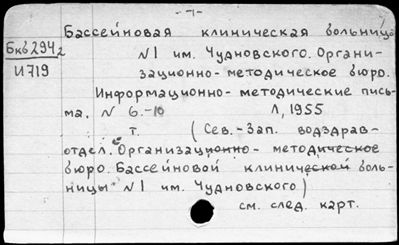 -7-
Бассейновая клиническая больница
Бкб2942
И719
N1 им. Чудновского. Органи-
зационно-методическое бюро.
Информационно-методические пись-
ма. N 6.-10 Л, 1955
т. (Сев.-Зап. водздрав-
отдел. Организационно-методическое
бюро. Бассейновой клинической боль-
ницы N1 им. Чудновского)
см. след. карт.